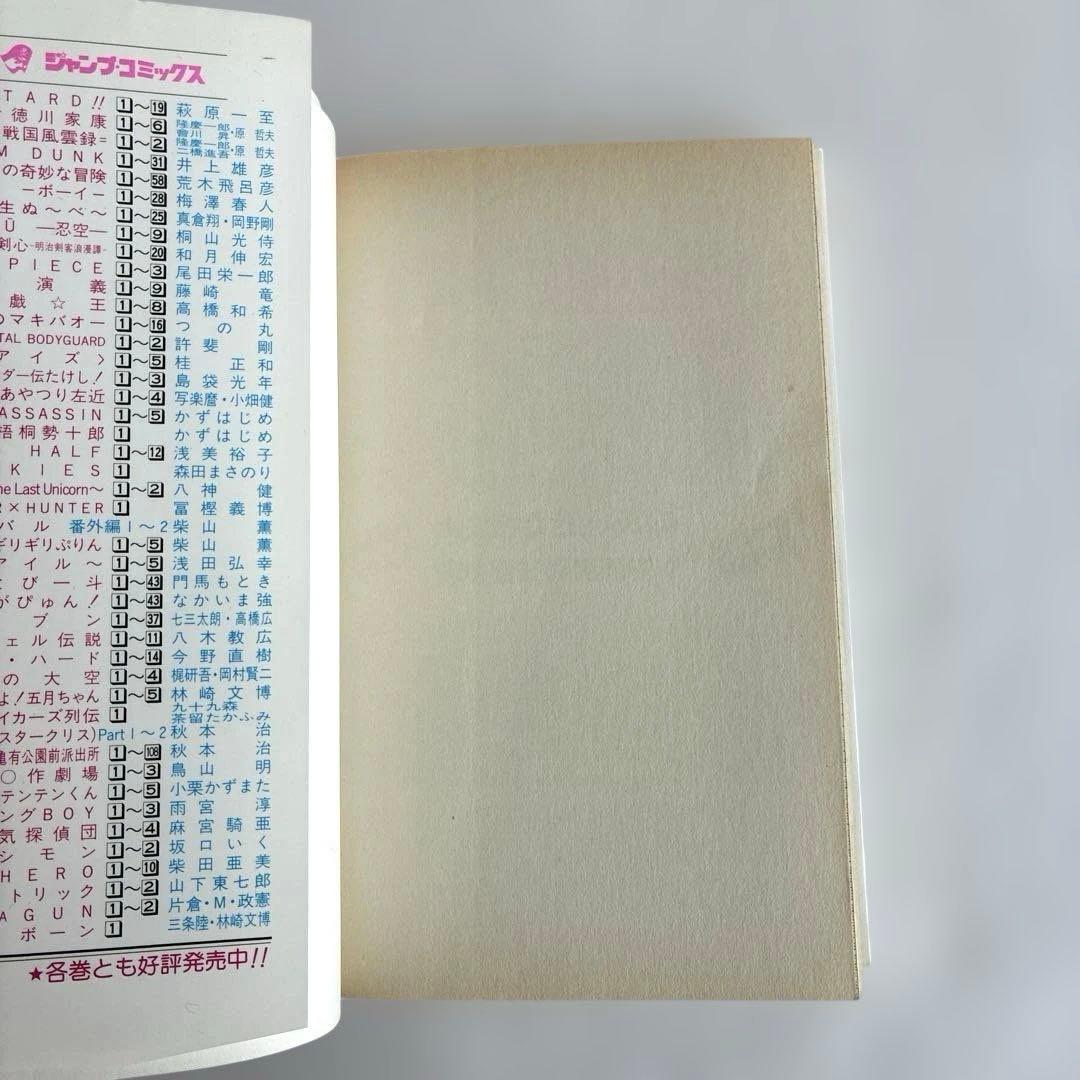 ジャンプ・コミックス
TARD!! 1〜19 萩原一至
徳川家康 1〜6 隆慶一郎・會川昇・原哲夫
戦国風雲録= 1〜2 隆慶一郎・二橋進吾・原哲夫
M DUNK 1〜31 井上雄彦
の奇妙な冒険 1〜58 荒木飛呂彦
-ボーイ- 1〜28 梅澤春人
生ぬ〜べ〜 1〜25 真倉翔・岡野剛
Ū —忍空— 1〜9 桐山光侍
剣心-明治剣客浪漫譚- 1〜20 和月伸宏
PIECE 1〜3 尾田栄一郎
演義 1〜9 藤崎竜
戯☆王 1〜8 高橋和希
のマキバオー 1〜16 つの丸
TAL BODYGUARD 1〜2 許斐剛
アイズ〉 1〜5 桂正和
ダー伝たけし! 1〜3 島袋光年
あやつり左近 1〜4 写楽麿・小畑健
ASSASSIN 1〜5 かずはじめ
梧桐勢十郎 1 かずはじめ
HALF 1〜12 浅美裕子
KIES 1 森田まさのり
he Last Unicorn〜 1〜2 八神健
R×HUNTER 1 冨樫義博
バル 番外編1〜2 柴山薫
ギリギリぷりん 1〜5 柴山薫
アイル〜 1〜5 浅田弘幸
とび一斗 1〜43 門馬もとき
がぴゅん! 1〜43 なかいま強
ブン 1〜37 七三太朗・高橋広
ェル伝説 1〜11 八木教広
・ハード 1〜14 今野直樹
の大空 1〜4 梶研吾・岡村賢二
よ!五月ちゃん 1〜5 林崎文博
イカーズ列伝 1 九十九森・茶留たかふみ
スタークリス) Part1〜2 秋本治
亀有公園前派出所 1〜108 秋本治
○作劇場 1〜3 鳥山明
テンテンくん 1〜5 小栗かずまた
ングBOY 1〜3 雨宮淳
気探偵団 1〜4 麻宮騎亜
シモン 1〜2 坂口いく
HERO 1〜10 柴田亜美
トリック 1〜2 山下東七郎
AGUN 1〜2 片倉・M・政憲
ボーン 1 三条陸・林崎文博
★各巻とも好評発売中!!